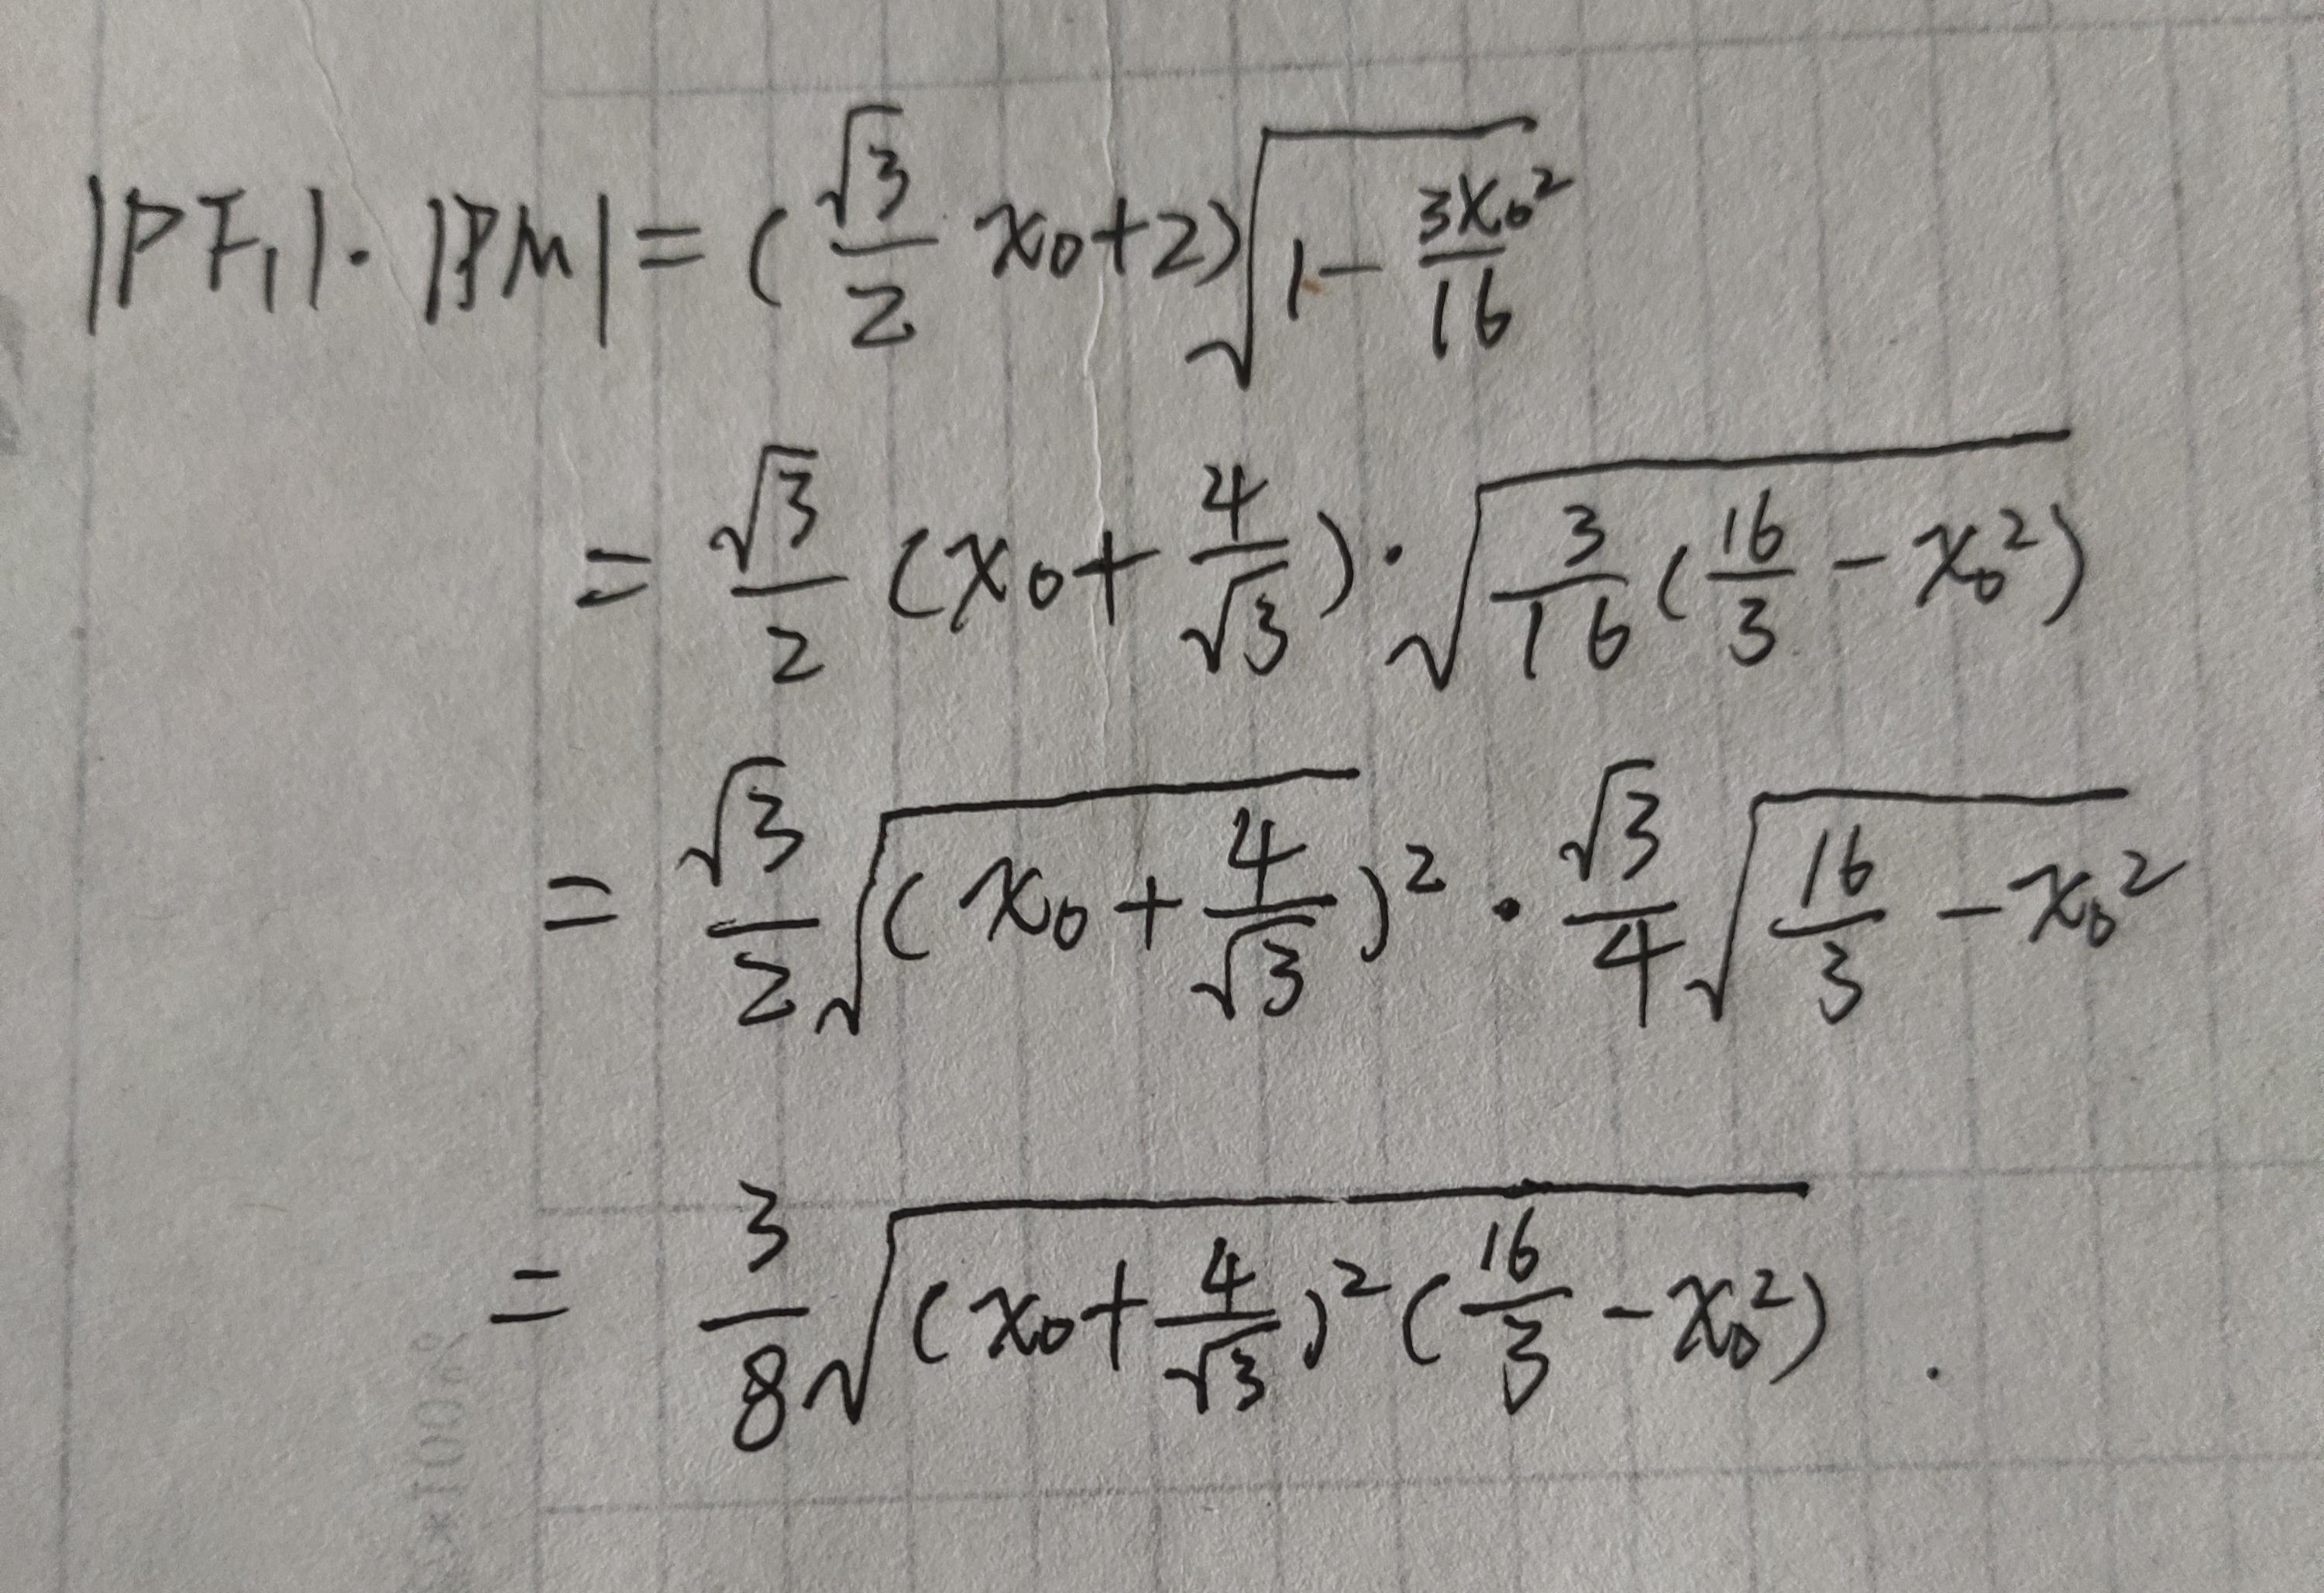 |PF₁|·|PM| = (√3/2 x₀+2)√(1 - 3x₀²/16)
= √3/2 (x₀+4/√3)·√(3/16(16/3 - x₀²))
= √3/2 √((x₀+4/√3)²)·√3/4 √(16/3 - x₀²)
= 3/8 √((x₀+4/√3)²(16/3 - x₀²)).